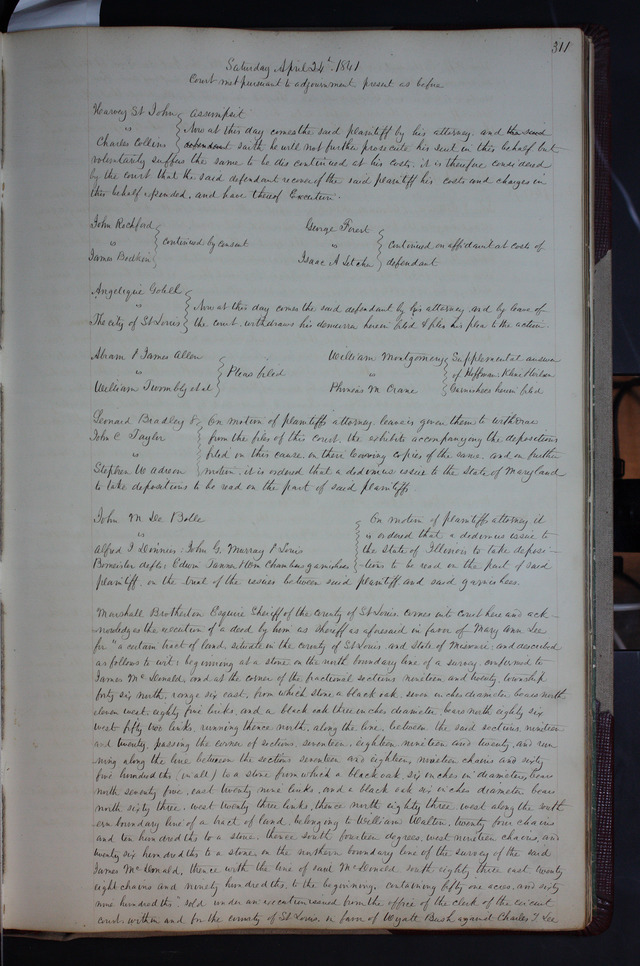 311
Saturday April 24th 1841
Court met pursuant to adjournment present as before
Hearvey St John } assumpsit
" } Now at this day comes the said plaintiff by his attorney. and the said
Charles Collins } defendant saith he will not further prosecute his suit in this behalf but
voluntarily suffers the same to be discontinued at his costs. it is therefore considered
by the court that the said defendant recover of the said plaintiff his costs and charges in
this behalf expended, and have thereof Execution.
John Rochford
" } continued by consent
James Bodkin
George Forest
" } continued on affidavit at costs of
Isaac A Letcher } defendant
Angelique Gobell
" } Now at this day comes the said defendant by his attorney and by leave of
The city of St Louis } the court. withdraws his demurrer herein filed & files his plea to the action.
Abram & James Allen
" } Pleas filed
William Twombly et al
William Montgomery } Supplemental answer
" } of Hoffman,
Phineas M Crane } Garnishees herein filed
Leonard Bradley & } On motion of plaintiffs attorney. leave is given them to withdraw
John C Taylor } from the files of this court. the exhibits accompanying the depositions
" } filed in this cause. on there leaving copies of the same. and on further
Stephen W Adreon } motion, it is ordered that a dedimus issue to the State of Maryland
to take depositions to be read on the part of said plaintiffs.
John M Lee & Bolle } On motion of plaintiffs attorney it
" } is ordered that a dedimus issue to
Alfred J Dinnies, John G. Murray & Louis } the State of Illinois to take deposi-
Bomeisler defts, Edwin Tanner & Wm Chambers garnishees } tions to be read on the part of said
plaintiff. on the trial of the issues between said plaintiff and said garnishees.
Marshall Brotherton Esquire Sheriff of the county of St Louis comes into court here and ack-
nowledges the execution of a deed by him as Sheriff as aforesaid in favor of Mary Ann Lee
for "a certain tract of land, situate in the county of St Louis and State of Missouri, and described
as follows to wit: beginning at a stone on the north boundary line of a survey confirmed to
James McDonald, and at the corner of the fractional sections nineteen and twenty, township
forty six north, range six east, from which stone a black oak, seven inches diameter bears north
eleven west, eighty five links, and a black oak three inches diameter bears north eighty six
west fifty two links. running thence north, along the line, between the said sections nineteen
and twenty, passing the corner of sections, seventeen, eighteen nineteen and twenty, and run
ning along the line between the sections seventeen and eighteen, nineteen chains and sixty
five hundredths (in all) to a stone from which a black oak, six inches in diameter, bears
north seventy four, east twenty nine links. and a black oak six inches diameter bears
north sixty three, west twenty three links, thence north eighty three, west along the south
ern boundary line of a tract of land, belonging to William Walton, twenty four chains
and ten hundredths to a stone. thence south fourteen degrees, west nineteen chains, and
twenty six hundredths to a stone, on the northern boundary line of the survey of the said
James McDonald, thence with the line of said McDonald south eighty three east twenty
eight chains and ninety hundredths, to the beginning. containing fifty one acres and sixty
nine hundredths." sold under an execution issued from the office of the clerk of the circuit
court within and for the county of St Louis, in favor of Wyatt Bush against Charles T Lee